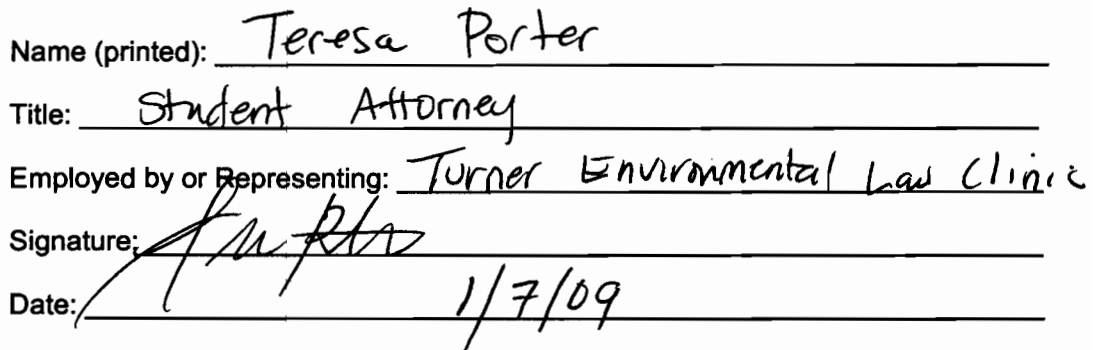 Name (printed): Teresa Porter
Title: Student Attorney
Employed by or Representing: Turner Environmental Law Clinic
Signature:
Date: 1/7/09